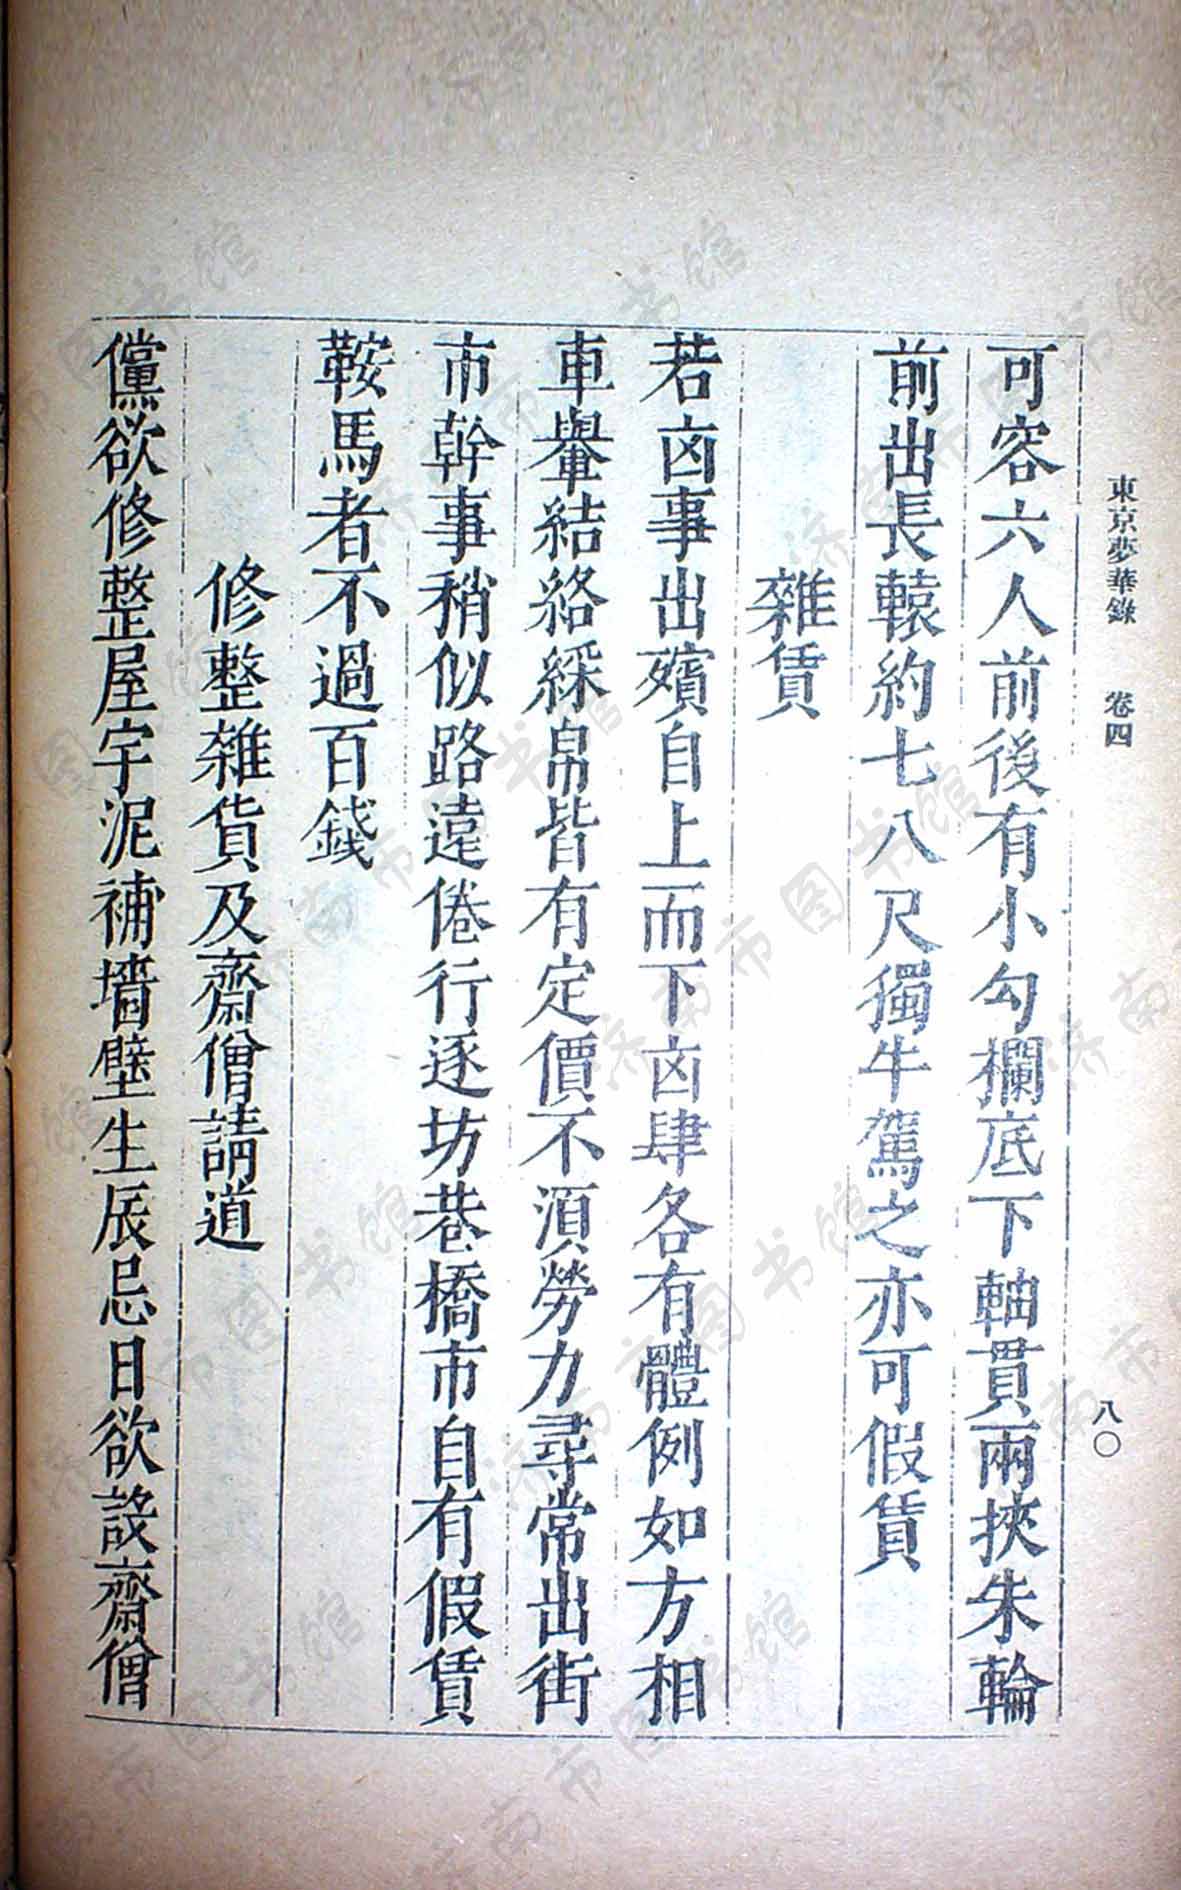 東京夢華錄　卷四　八〇
可容六人前後有小勾欄底下軸貫兩挾朱輪
前出長轅約七八尺獨牛駕之亦可假賃
雜賃
若凶事出殯自上而下凶肆各有體例如方相
車轝結絡綵帛皆有定價不須勞力尋常出街
市幹事稍似路遠倦行逐坊巷橋市自有假賃
鞍馬者不過百錢
修整雜貨及齋僧請道
儻欲修整屋宇泥補墻壁生辰忌日欲設齋僧
济南市图书馆